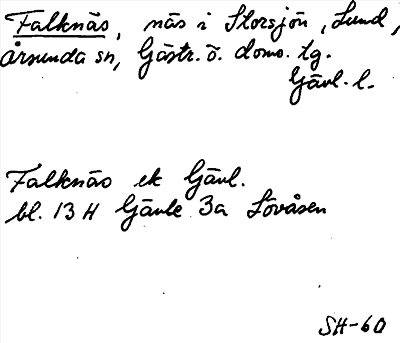 Falknäs, näs i Storsjön, Lund,
Årsunda sn, Gästr. ö. doms. tg.
Gävl. l.
Falknäs ek Gävl.
bl. 13 H Gävle 3a Lövåsen
SH-60